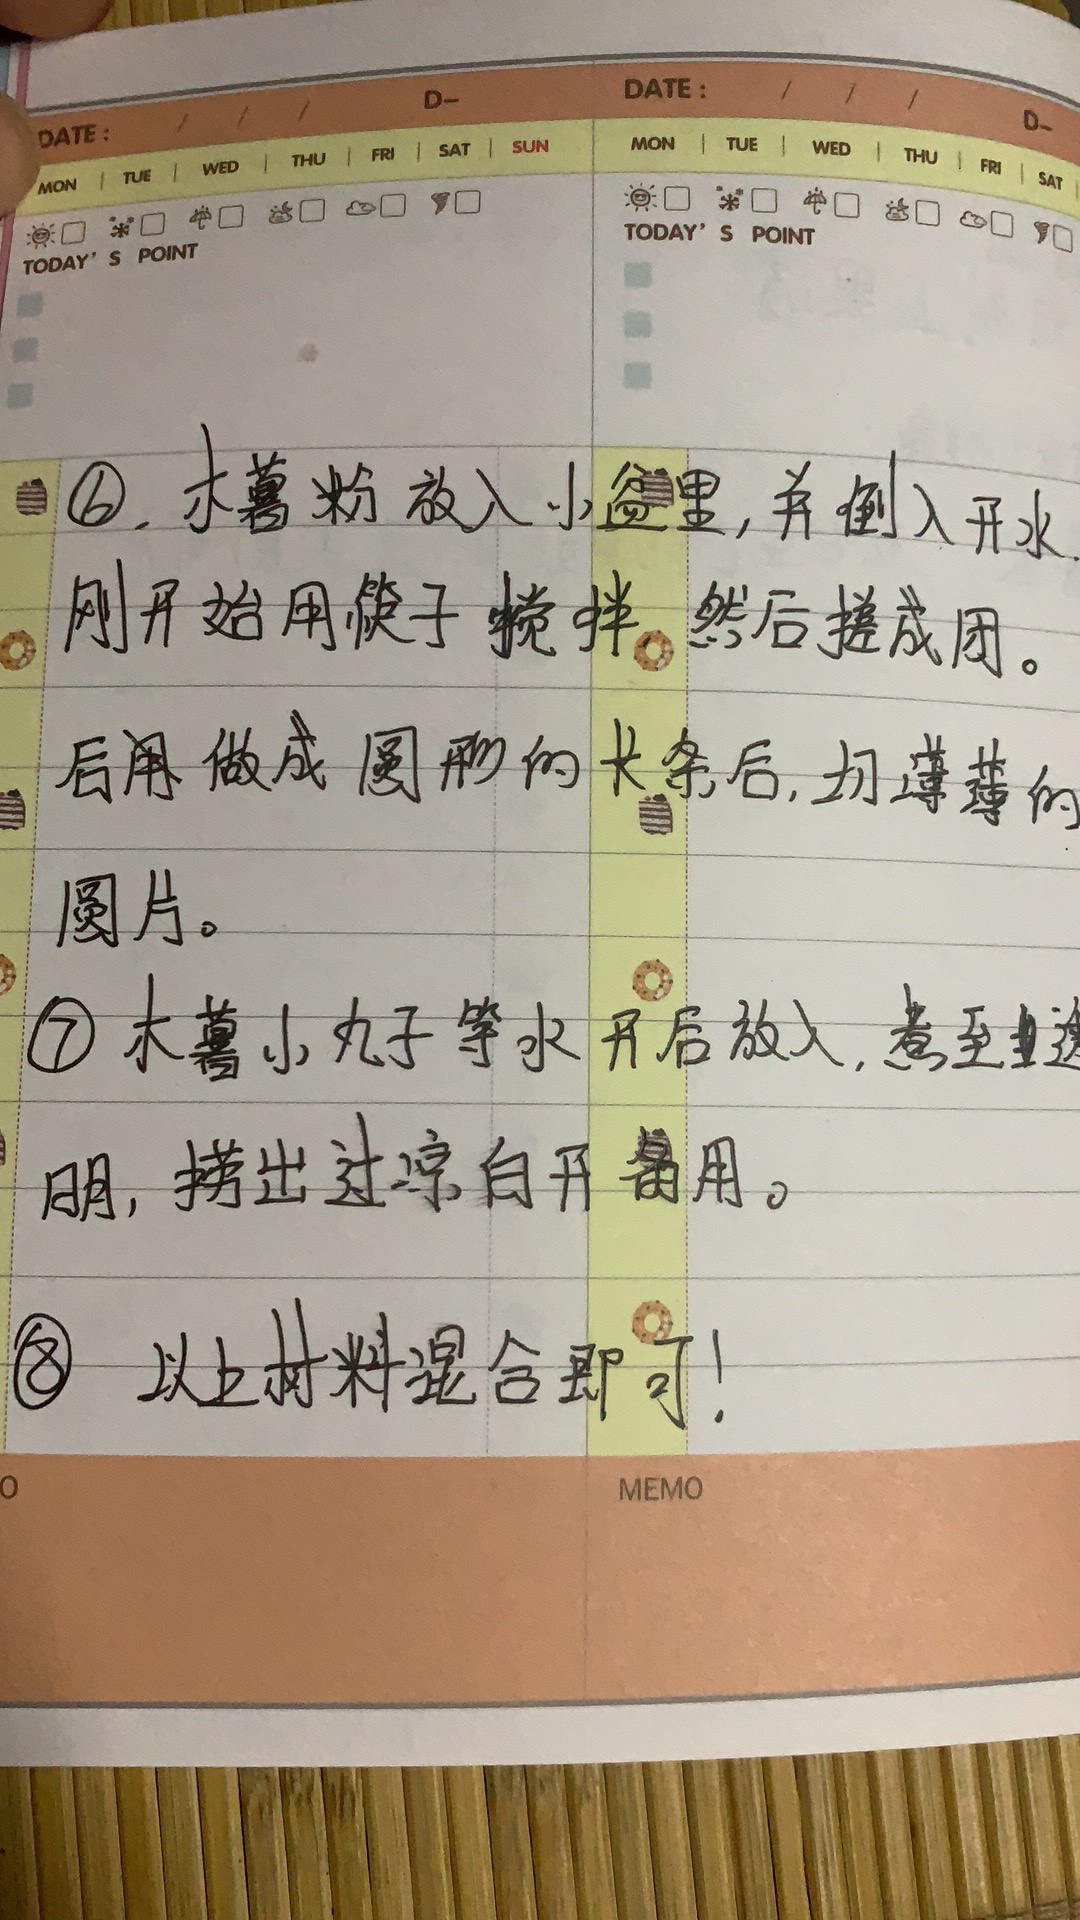 DATE: / / / D-
DATE: / / / D-
MON | TUE | WED | THU | FRI | SAT | SUN
MON | TUE | WED | THU | FRI | SAT
TODAY'S POINT
TODAY'S POINT
⑥. 木薯粉放入小盆里,并倒入开水.
刚开始用筷子搅拌。然后搓成团。
后再做成圆形的长条后,切薄薄的
圆片。
⑦木薯小丸子等水开后放入,煮至透
明,捞出过凉白开备用。
⑧ 以上材料混合即可!
O
MEMO